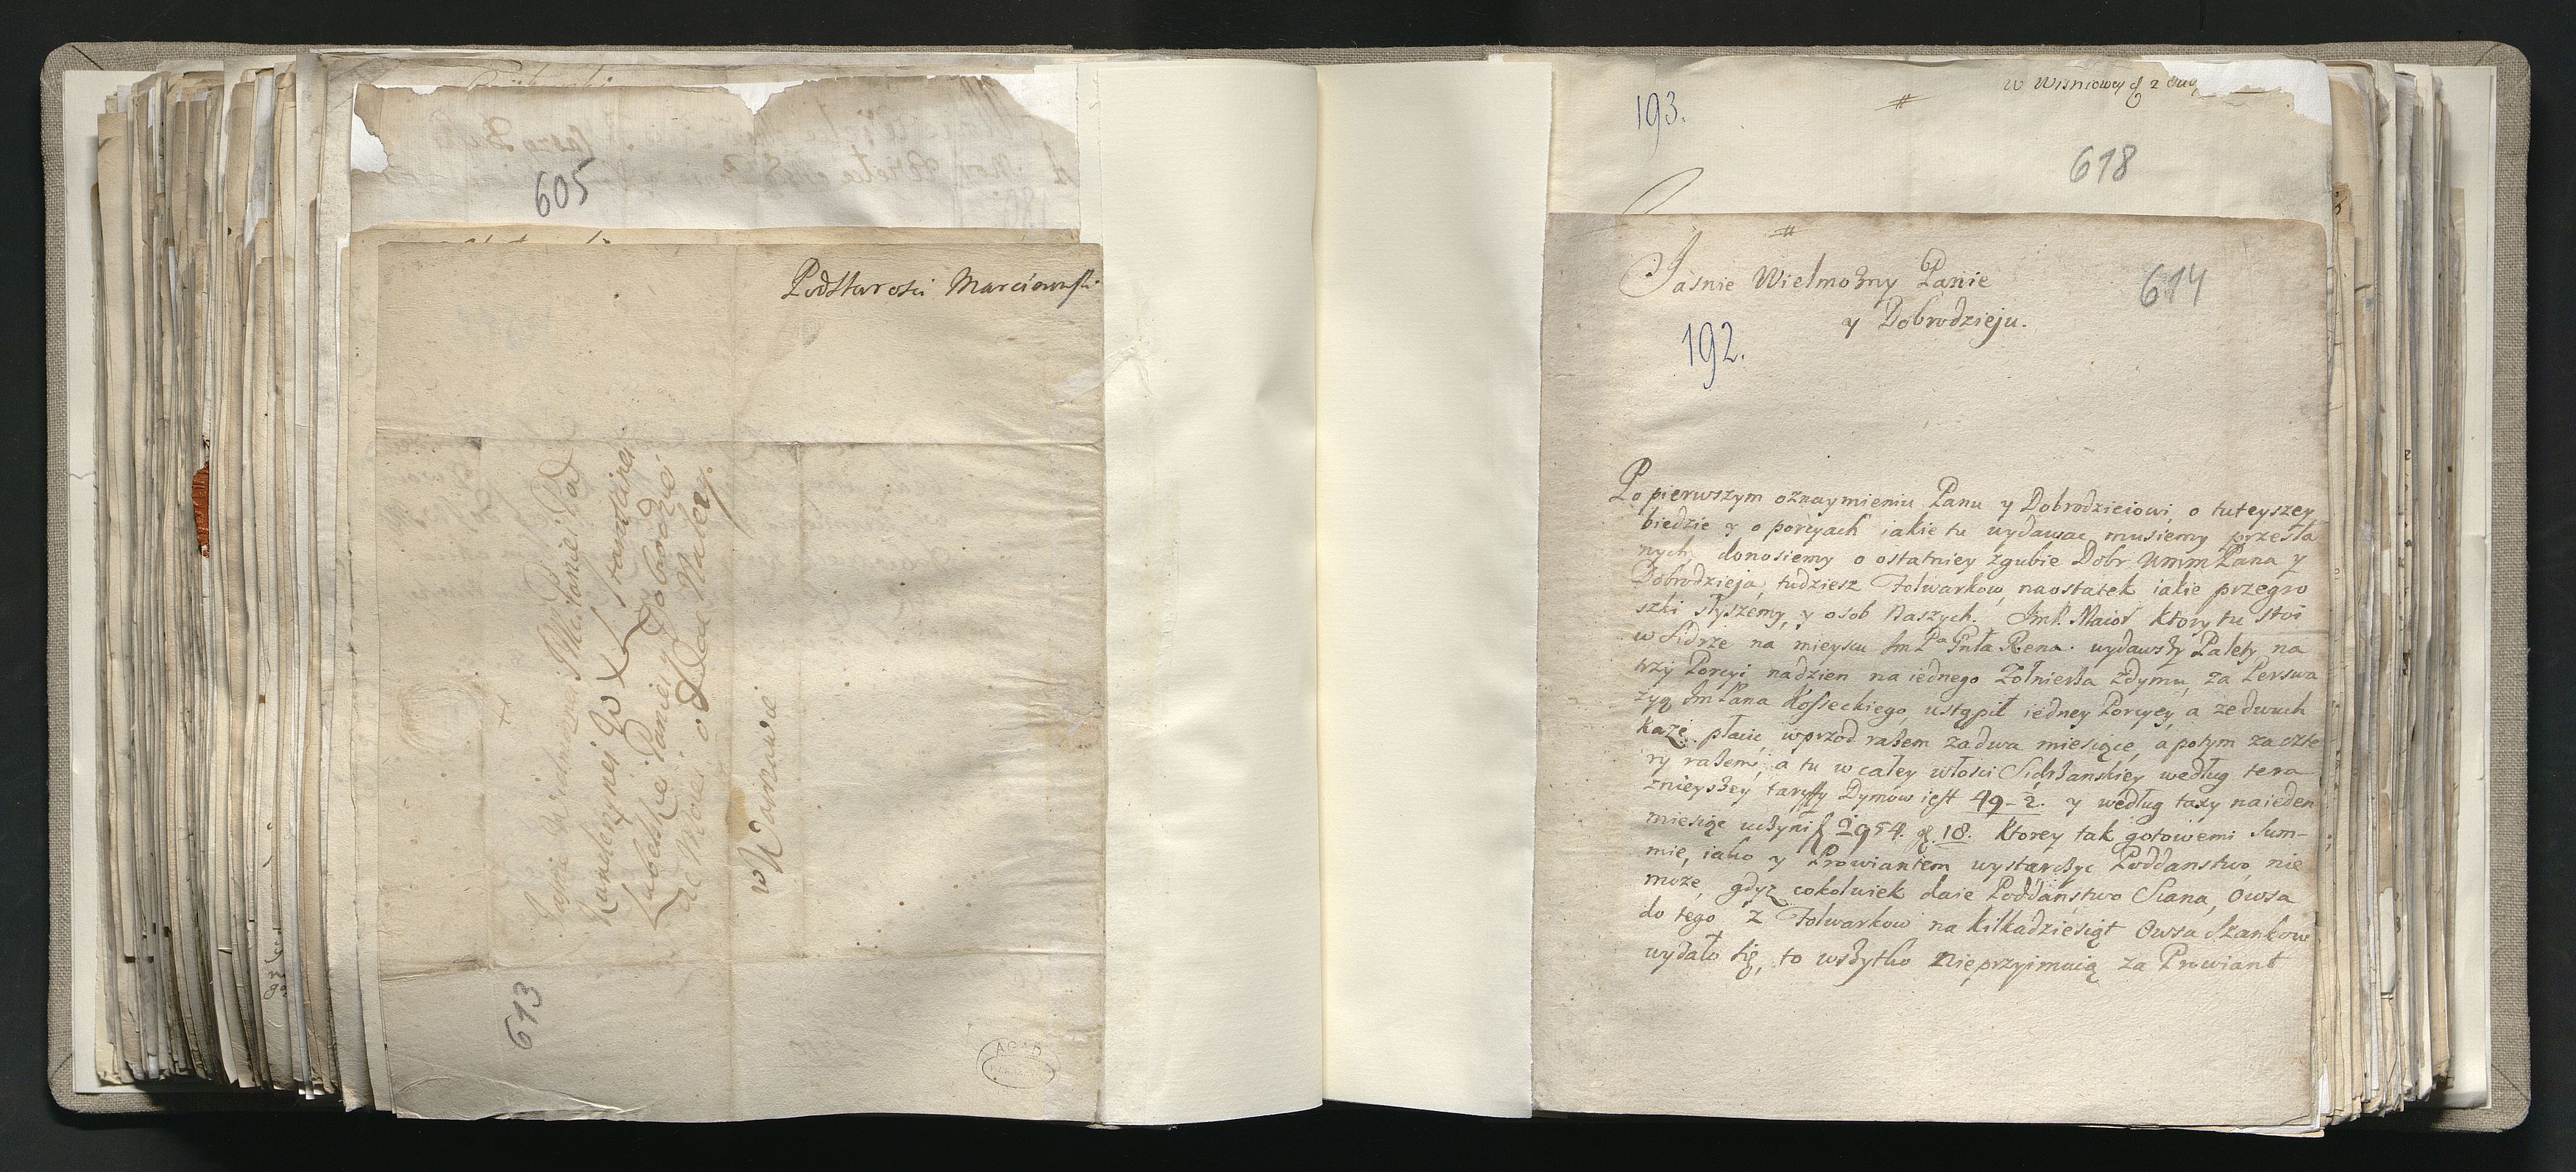 605
Podstarosci Marciowski
Jasnie Wielmożnej JMci Panie Pod
Kanclerzynej W X L Starościnej
Lubelskiej Paniej y Dobrodziei
do Moiei oddac Należy.
w Warszawie
613
AGAD
193.
w Wisniowey d 2 Aug
618
Jasnie Wielmożny Panie
y Dobrodzieju.
614
192.
Po pierwszym oznaymieniu Panu y Dobrodzieiowi, o tuteyszey
biedzie y o porcyach iakie tu wydawac musiemy przesła
nych, donosiemy o ostatniey zgubie Dobr WmmPana y
Dobrodzieja, tudziesz Folwarkow, naostatek iakie przegro
szki słyszemy, y osob Naszych. Jmp. Maior ktory tu stoi
w Sidrze na mieyscu Jm Pa Gnła Rena. wydawszy Palety na
trzy Porcyi nadzien na iednego Zołnierza zdymu, za Perswa
zyą Jm Pana Kosseckiego, ustąpił iedney Porcyey, a ze dwuch
każe płacic wprzod razem za dwa miesiące, a potym za czte
ry razem, a tu w całey włosci Sidrzanskiey według tera
znieyszey taryffy Dymów iest 49-2. y według taxy na ieden
miesiąc uczyni f 2954. gr. 18. Ktorey tak gotowemi Sum-
mie, iako y Prowiantem wystarczyc Poddanstwo nie
może, gdyz cokolwiek daie Poddanstwo Siana, Owsa
do tego z Folwarkow na kilkadziesiąt Owsa Szankow
wydało się, to wszytko Nieprzyimuią za Prowiant